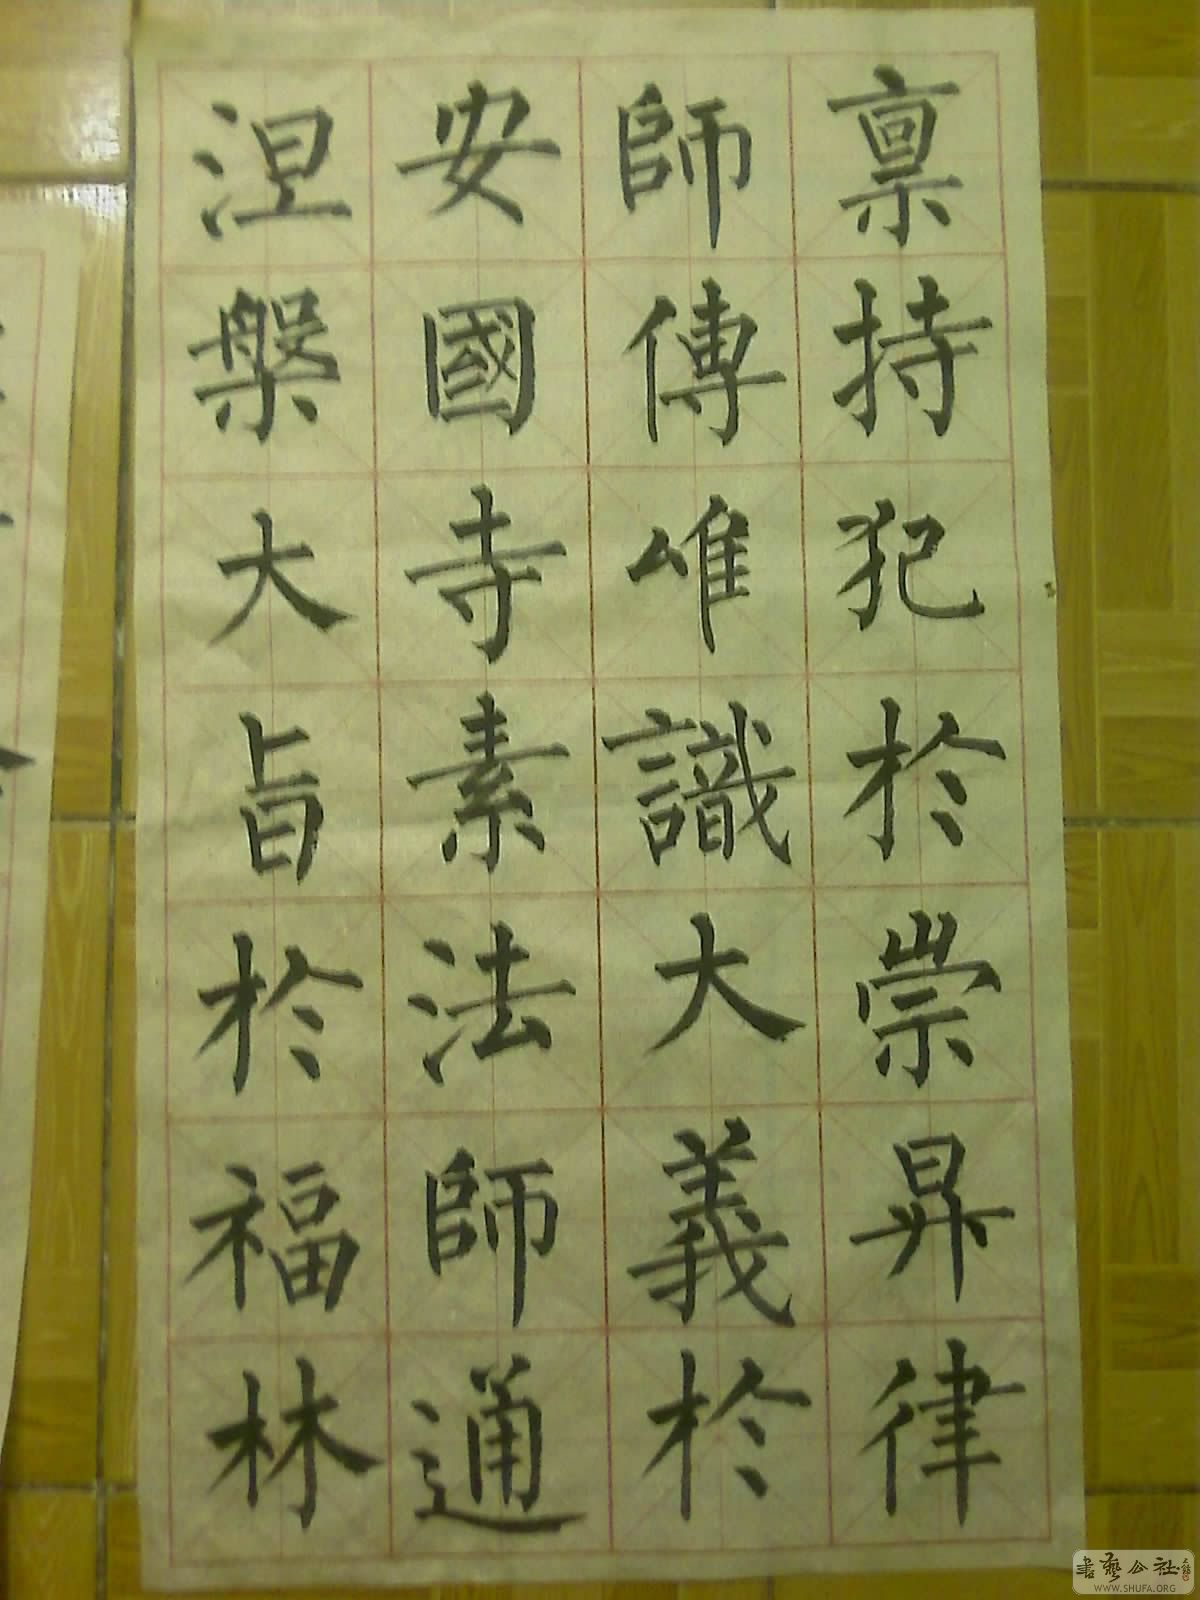 稟持犯於崇昇律
師傳唯識大義於
安國寺素法師通
涅槃大旨於福林
書藝公社
WWW.SHUFA.ORG